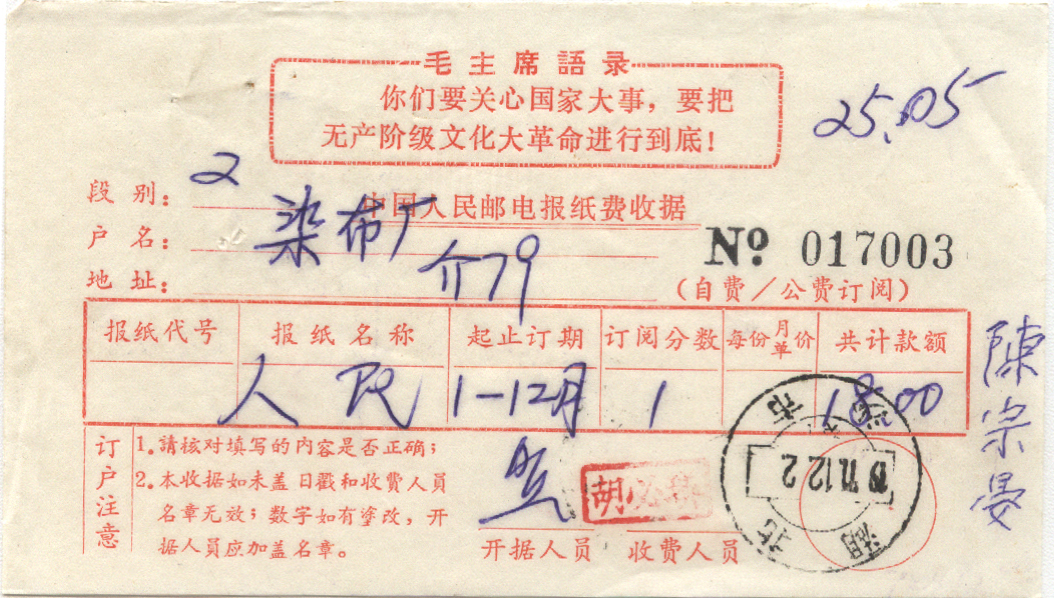 毛主席語录
你们要关心国家大事，要把
无产阶级文化大革命进行到底！
25.05
段别： 2
中国人民邮电报纸费收据
户名： 染布厂
№ 017003
地址： 介79
（自费／公费订阅）
报纸代号 报纸名称 起止订期 订阅分数 每份月单价 共计款额
人民 1—12月 1 18.00
陳宗晏
订户注意
1.請核对填写的内容是否正确；
2.本收据如未盖日戳和收费人员
名章无效；数字如有塗改，开
据人员应加盖名章。
胡
开据人员 收费人员
湖北
71.12.2
市